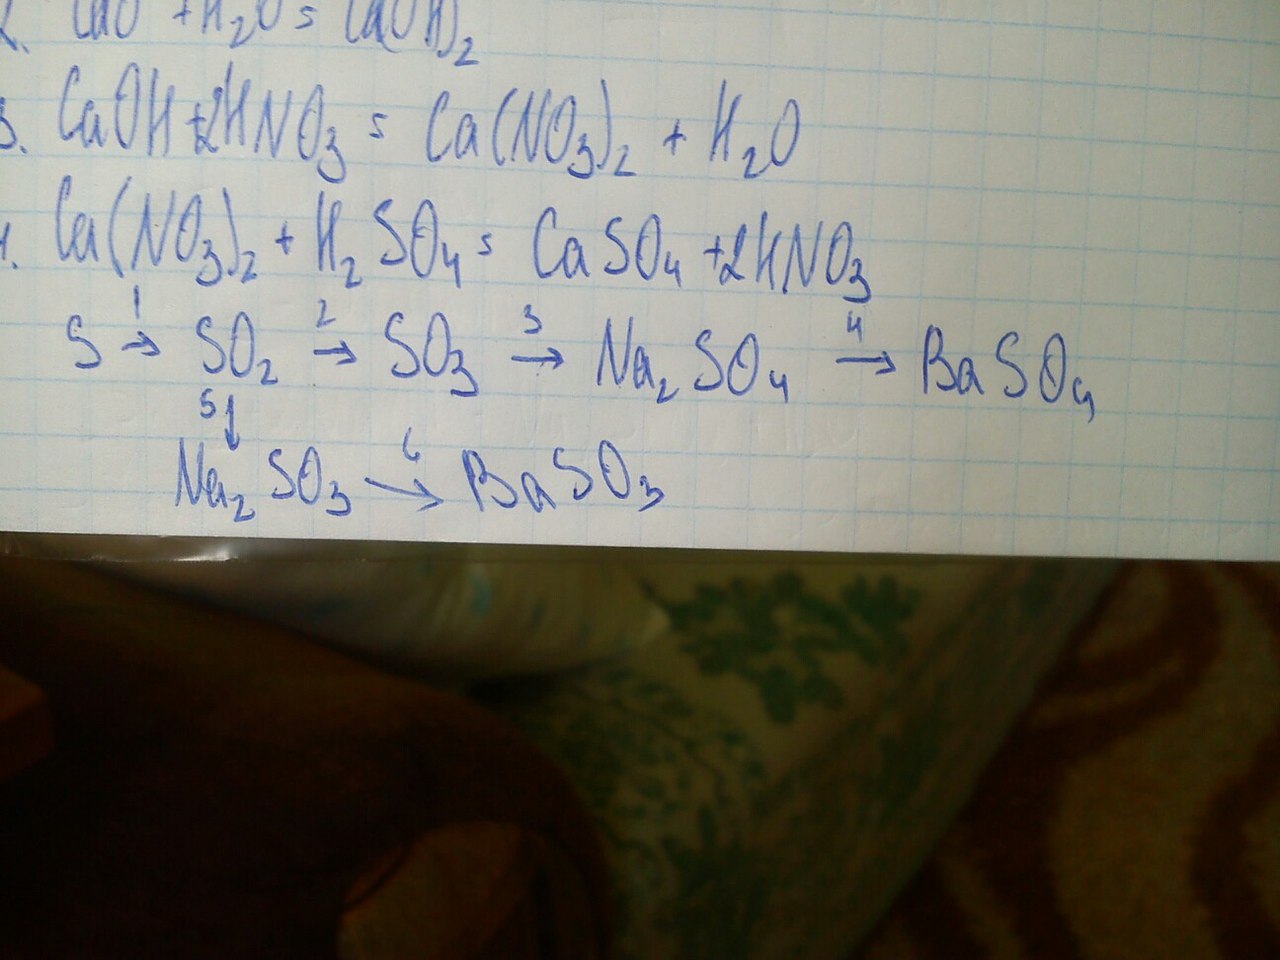 2. CaO + H₂O = Ca(OH)₂
3. CaOH + 2HNO₃ = Ca(NO₃)₂ + H₂O
4. Ca(NO₃)₂ + H₂SO₄ = CaSO₄ + 2HNO₃
S →¹ SO₂ →² SO₃ →³ Na₂SO₄ →⁴ BaSO₄
5↓
Na₂SO₃ →⁶ BaSO₃